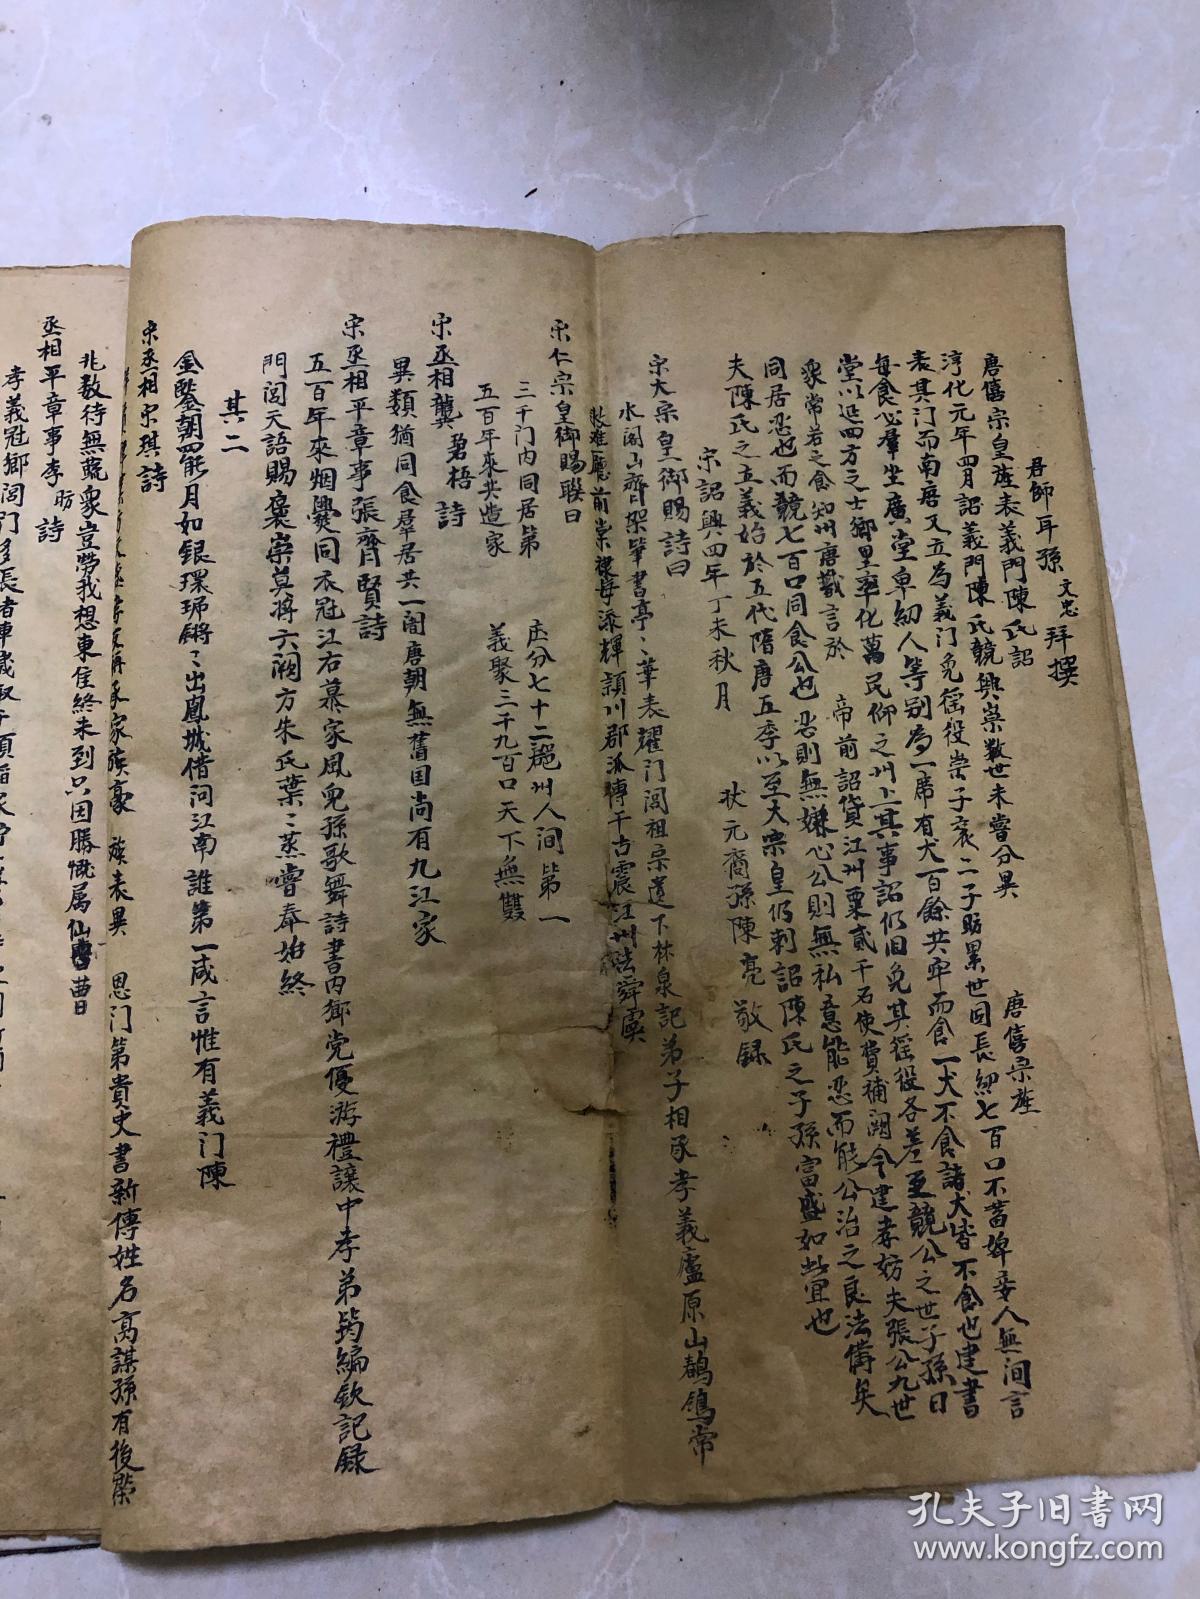 君師耳孫文忠拜撰
唐僖宗皇旌表義門陳氏詔 唐僖宗旌
淳化元年四月詔義門陳氏競興崇数世未嘗分異
表其門而南唐又立為義门免徭役崇子袞二子昉累世同長幼七百口不蓄婢妾人無间言
每食必羣坐廣堂卑幼人等别為一席有犬一百餘共牢而食一犬不食諸犬皆不食也建書
堂以延四方之士鄉里率化萬民仰之州上其事詔仍旧免其徭役各差至競公之世子孫日
衆常若之食知州唐戴言於 帝前詔貸江州粟貳千石使贊補闕今建孝妨夫張公九世
同居忍也而競七百口同食公也忍則無嫌心公則無私意能忍而能公治之良法備矣
夫陳氏之立義始於五代隋唐五季以至大宗皇仍刺詔陳氏之子孫富盛如此宜也
宋詔興四年丁未秋月 状元裔孫陳亮敬録
宗太宗皇御賜詩曰
水阁山齊架肇書亭〻華表耀门閭祖宗遺下林泉記弟子相承孝義廬原山鷓鴣常
前崇禮每添輝頴川郡派傳千古震江州法舜虞
宋仁宗皇御賜聯曰
三千门内同居第 庄分七十二麗州人间第一
五百年來共造家 義聚三千九百口天下無雙
宋丞相龔君梧詩
異類猶同食羣居共一阁唐朝無舊国尚有九江家
宋丞相平章事張齊賢詩
五百年來烟爨同衣冠江右慕家風児孫歌舞詩書内鄉党優游禮讓中孝弟编欽記録
門閭天語賜褒崇莫將六闕方朱氏葉〻蒸嘗奉始終
其二
金鑿朝罷月如銀環珮鏘〻出鳳城借问江南誰第一咸言惟有義门陳
宋丞相宋琪詩
家族豪 族表異 恩门第貴史書新傳姓名高謀孫有後榮
兆数待無虧衆豈勞我想東隹終未到只因勝慨属仙曹
丞相平章事李昉詩
孝義冠鄉闾门多長者車歲
孔夫子旧书网
www.kongfz.com